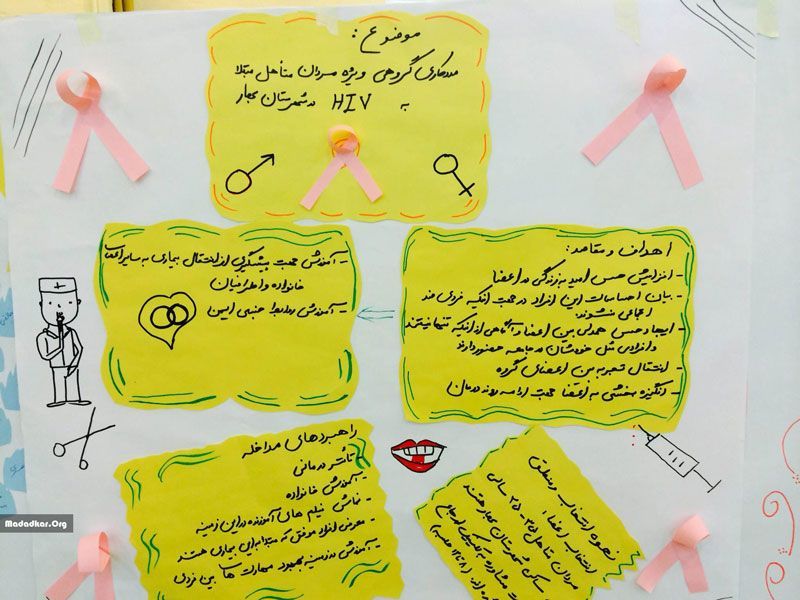 موضوع:
مددکاری گروهی ویژه مردان متأهل مبتلا
به HIV در شهرستان مجار
اهداف و مقاصد:
- افزایش حس امید به زندگی در اعضا
- بیان احساسات این افراد در جهت اینکه فردی ضد
اجتماعی نشوند.
- ایجاد حس همدلی بین اعضا و آگاهی از اینکه تنها نیستند
و افرادی مثل خودشان در جامعه حضور دارند
- انتقال تجربه بین اعضای گروه
- انگیزه بخشی به اعضا جهت ادامه روند درمان
- آموزش جهت پیشگیری از انتقال بیماری به سایر اعضای
خانواده و اطرافیان
- آموزش روابط جنسی ایمن
راهبردهای مداخله
- تأتر درمانی
- آموزش خانواده
- نمایش فیلم های آموزنده در این زمینه
- معرفی افراد موفق که مبتلا به این بیماری هستند
- آموزش در زمینه بهبود مهارت های بین فردی
نحوه انتخاب و منطق
انتخاب اعضا:
مردان متأهل ۲۵-۳۵ سالی
ساکن شهرستان مجار هستند
Madadkar.Org